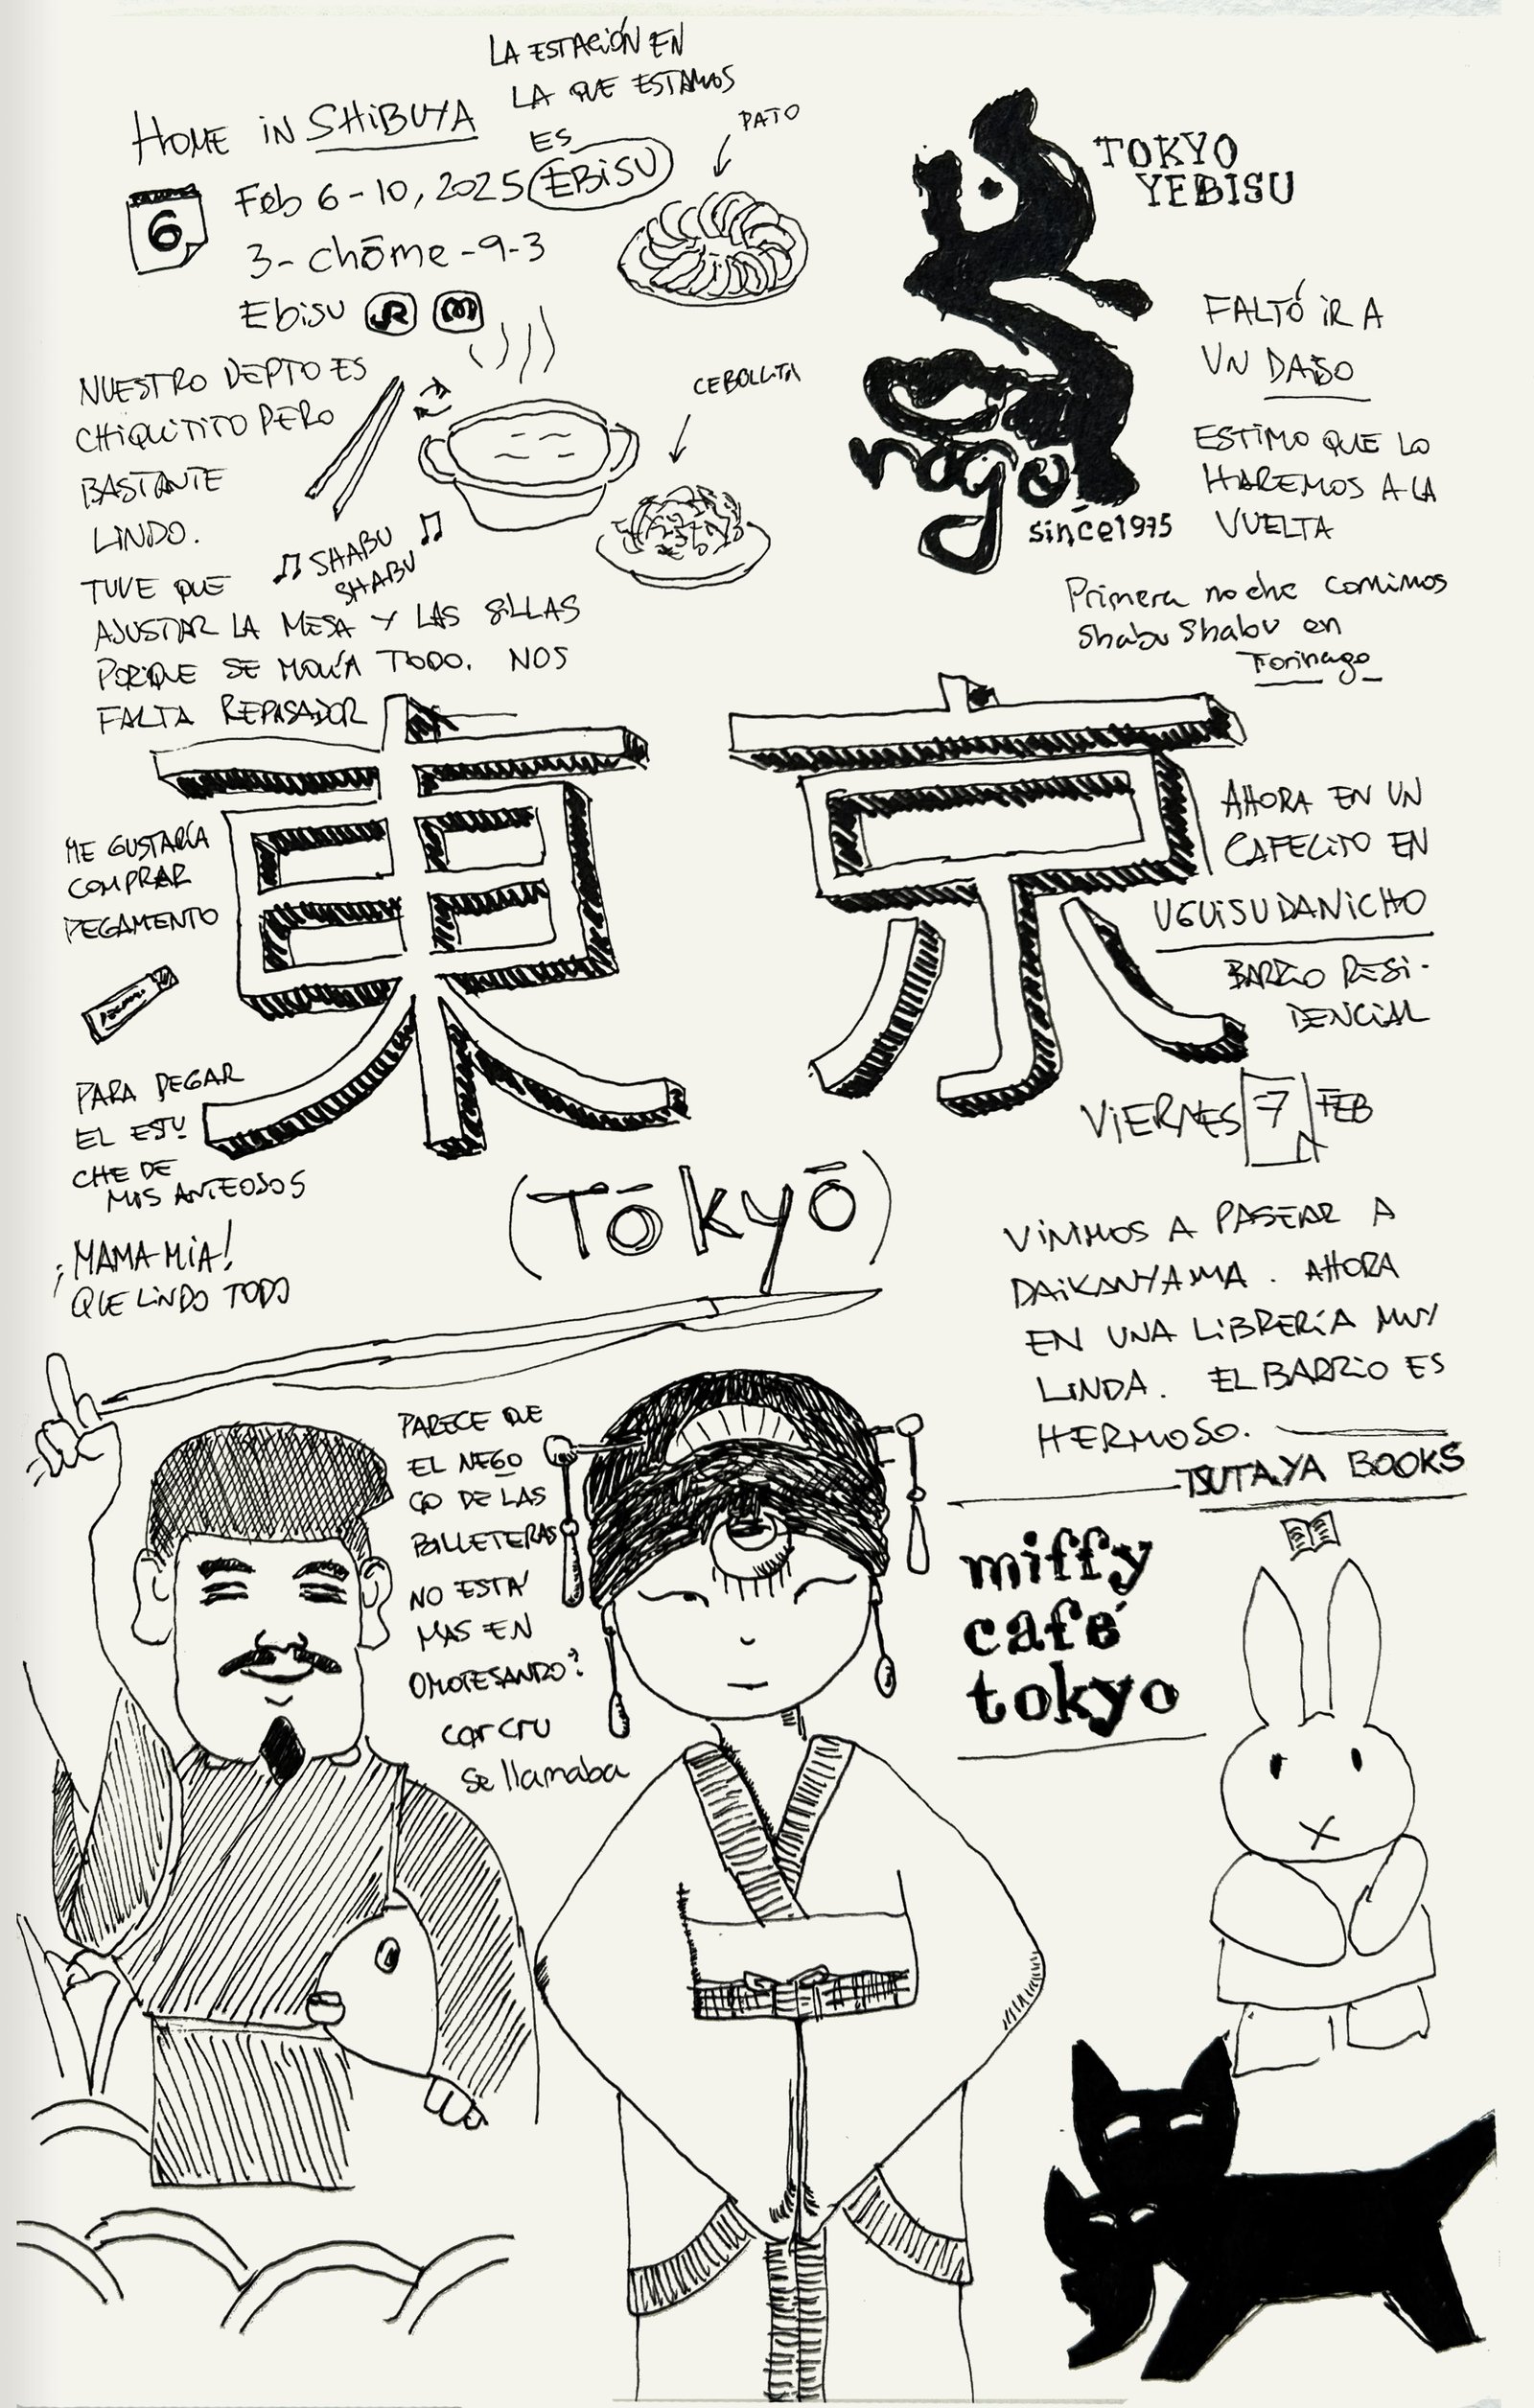 LA ESTACIÓN EN
LA QUE ESTAMOS
ES
EBISU
HOME IN SHIBUYA
6
Feb 6-10, 2025
3-chōme-9-3
Ebisu JR M
PATO
TOKYO
YEBISU
NUESTRO DEPTO ES
CHIQUITITO PERO
BASTANTE
LINDO.
TUVE QUE
AJUSTAR LA MESA Y LAS SILLAS
PORQUE SE MOVÍA TODO. NOS
FALTA REPASADOR
CEBOLLITA
SHABU
SHABU
nago
since1975
FALTÓ IR A
UN DAISO
ESTIMO QUE LO
HAREMOS A LA
VUELTA
Primera noche comimos
Shabu Shabu en
Torinago
東京
(Tōkyō)
ME GUSTARÍA
COMPRAR
PEGAMENTO
PARA PEGAR
EL ESTU
CHE DE
MIS ANTEOJOS
¡MAMA MIA!
QUE LINDO TODO
AHORA EN UN
CAFECITO EN
UGUISUDANICHO
BARRIO RESI-
DENCIAL
VIERNES 7 FEB
VINIMOS A PASEAR A
DAIKANYAMA. AHORA
EN UNA LIBRERÍA MUY
LINDA. EL BARRIO ES
HERMOSO.
TSUTAYA BOOKS
PARECE QUE
EL NEGO
CIO DE LAS
BILLETERAS
NO ESTÁ
MAS EN
OMOTESANDO?
carcru
se llamaba
miffy
café
tokyo